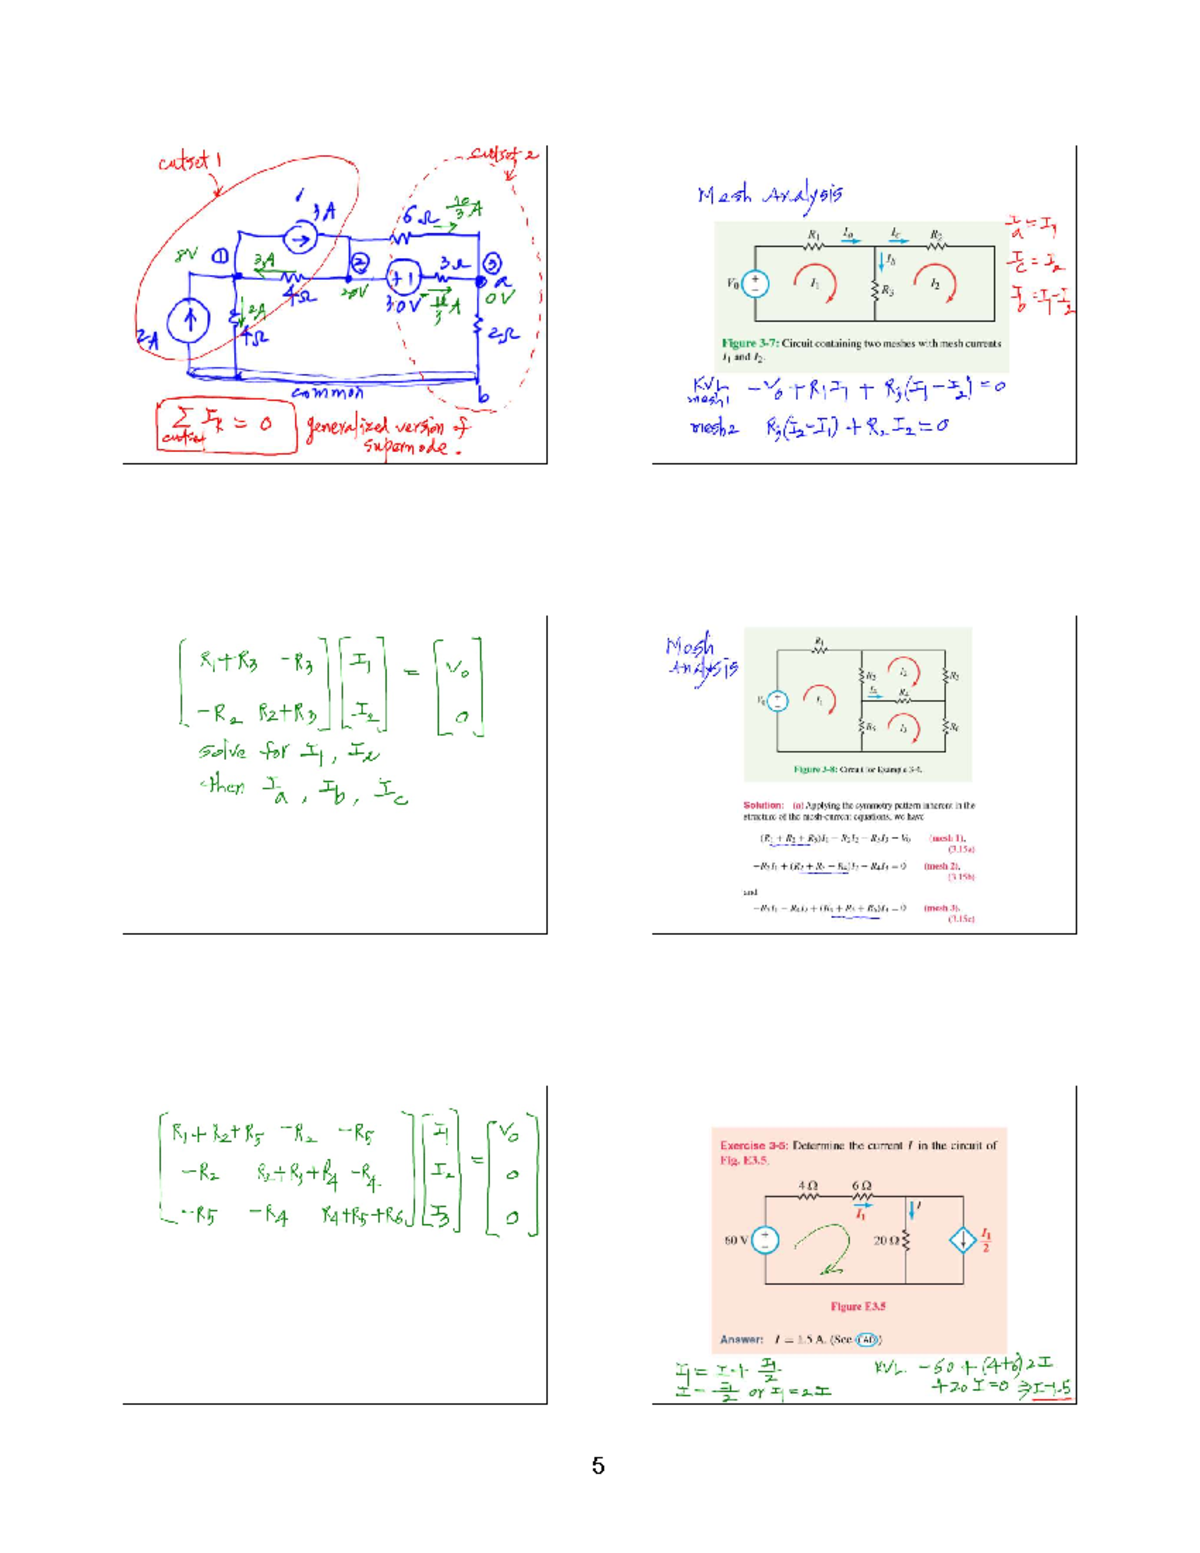 cutset 1
cutset 2
3A
6Ω
10/3 A
8V
①
3A
②
3Ω
③
a
4Ω
20V
30V
0V
2A
2A
4Ω
2Ω
common
b
∑ I_k = 0
cutset
generalized version of
supernode.
Mesh Analysis
R1 Ia Ic R2
Ib
V0 I1 R3 I2
Ia = I1
Ic = I2
Ib = I1 - I2
Figure 3-7: Circuit containing two meshes with mesh currents
I1 and I2.
KVL
mesh1 -V0 + R1I1 + R3(I1-I2) = 0
mesh2 R3(I2-I1) + R2 I2 = 0
R1+R3 -R3 I1 = V0
-R2 R2+R3 I2 0
solve for I1, I2
then Ia, Ib, Ic
Mesh
Analysis
R1
R2 I2 R3
V0 I1 R4
R5 I3 R6
Figure 3-8: Circuit for Example 3-4.
Solution: (a) Applying the symmetry pattern inherent in the
structure of the mesh-current equations, we have
(R1 + R2 + R5)I1 - R2I2 - R5I3 = V0 (mesh 1),
(3.15a)
(mesh 2),
(3.15b)
and
(mesh 3).
(3.15c)
R1+R2+R5 -R2 -R5 I1 = V0
-R2 R2+R3+R4 -R4 I2 0
-R5 -R4 R4+R5+R6 I3 0
Exercise 3-5: Determine the current I in the circuit of
Fig. E3.5.
4 Ω 6 Ω
I1 I
60 V 20 Ω I1/2
Figure E3.5
Answer: I = 1.5 A. (See CAD)
I1 = I + I1/2
I = I1/2 or I1 = 2I
KVL -50 + (4+6)2I
+20I = 0 ⇒ I=1.5
5